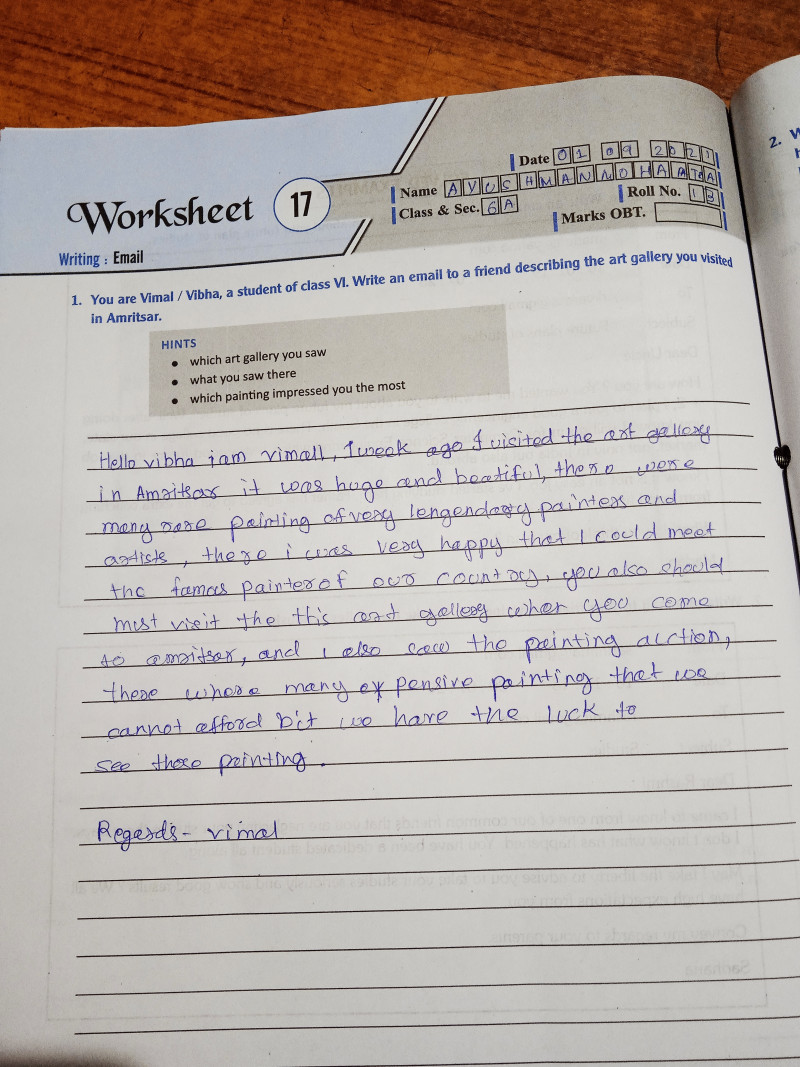 Worksheet 17
Date 01 09 2021
Name AYUSHMAN MOHAPATRA
Class & Sec. 6A
Roll No. 13
Marks OBT.
Writing : Email
2. W
1. You are Vimal / Vibha, a student of class VI. Write an email to a friend describing the art gallery you visited
in Amritsar.
HINTS
• which art gallery you saw
• what you saw there
• which painting impressed you the most
Hello vibha iam vimall, 1 week ago I visited the art gallery
in Amritsar it was huge and beatiful, there were
many rare painting of very lengendary painters and
artists, there i was very happy that I could meet
the famas painter of our country, you also should
must visit the this art gallery when you come
to amritsar, and i also saw the painting auction,
there whore many expensive painting that we
cannot afford bit we have the luck to
see those painting.
Regards - vimal